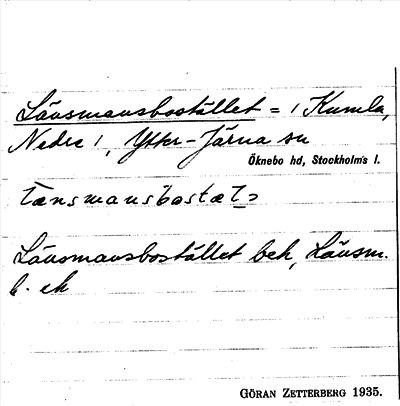 Länsmansbostället = 1 Kumla,
Nedre 1, Ytter-Järna sn
Öknebo hd, Stockholms l.
Länsmansbostället beh, Länsm.
b. ek
GÖRAN ZETTERBERG 1935.